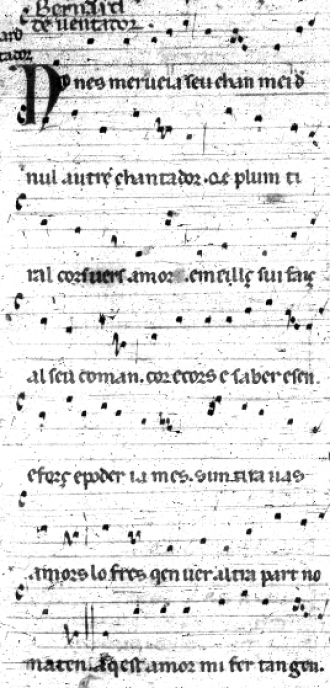 Bernard
de uentador
Nones merueia seu chan meiz
nul autre chantador. Qe plum ti
ral cors uers amor. emeillz sui faiz
al seu coman. cor ecors e saber esen.
eforz epoder ia mes. Sim tira uas
amors lo fres qen uer altra part no
maten. Aqest amor mi fer tan gen.